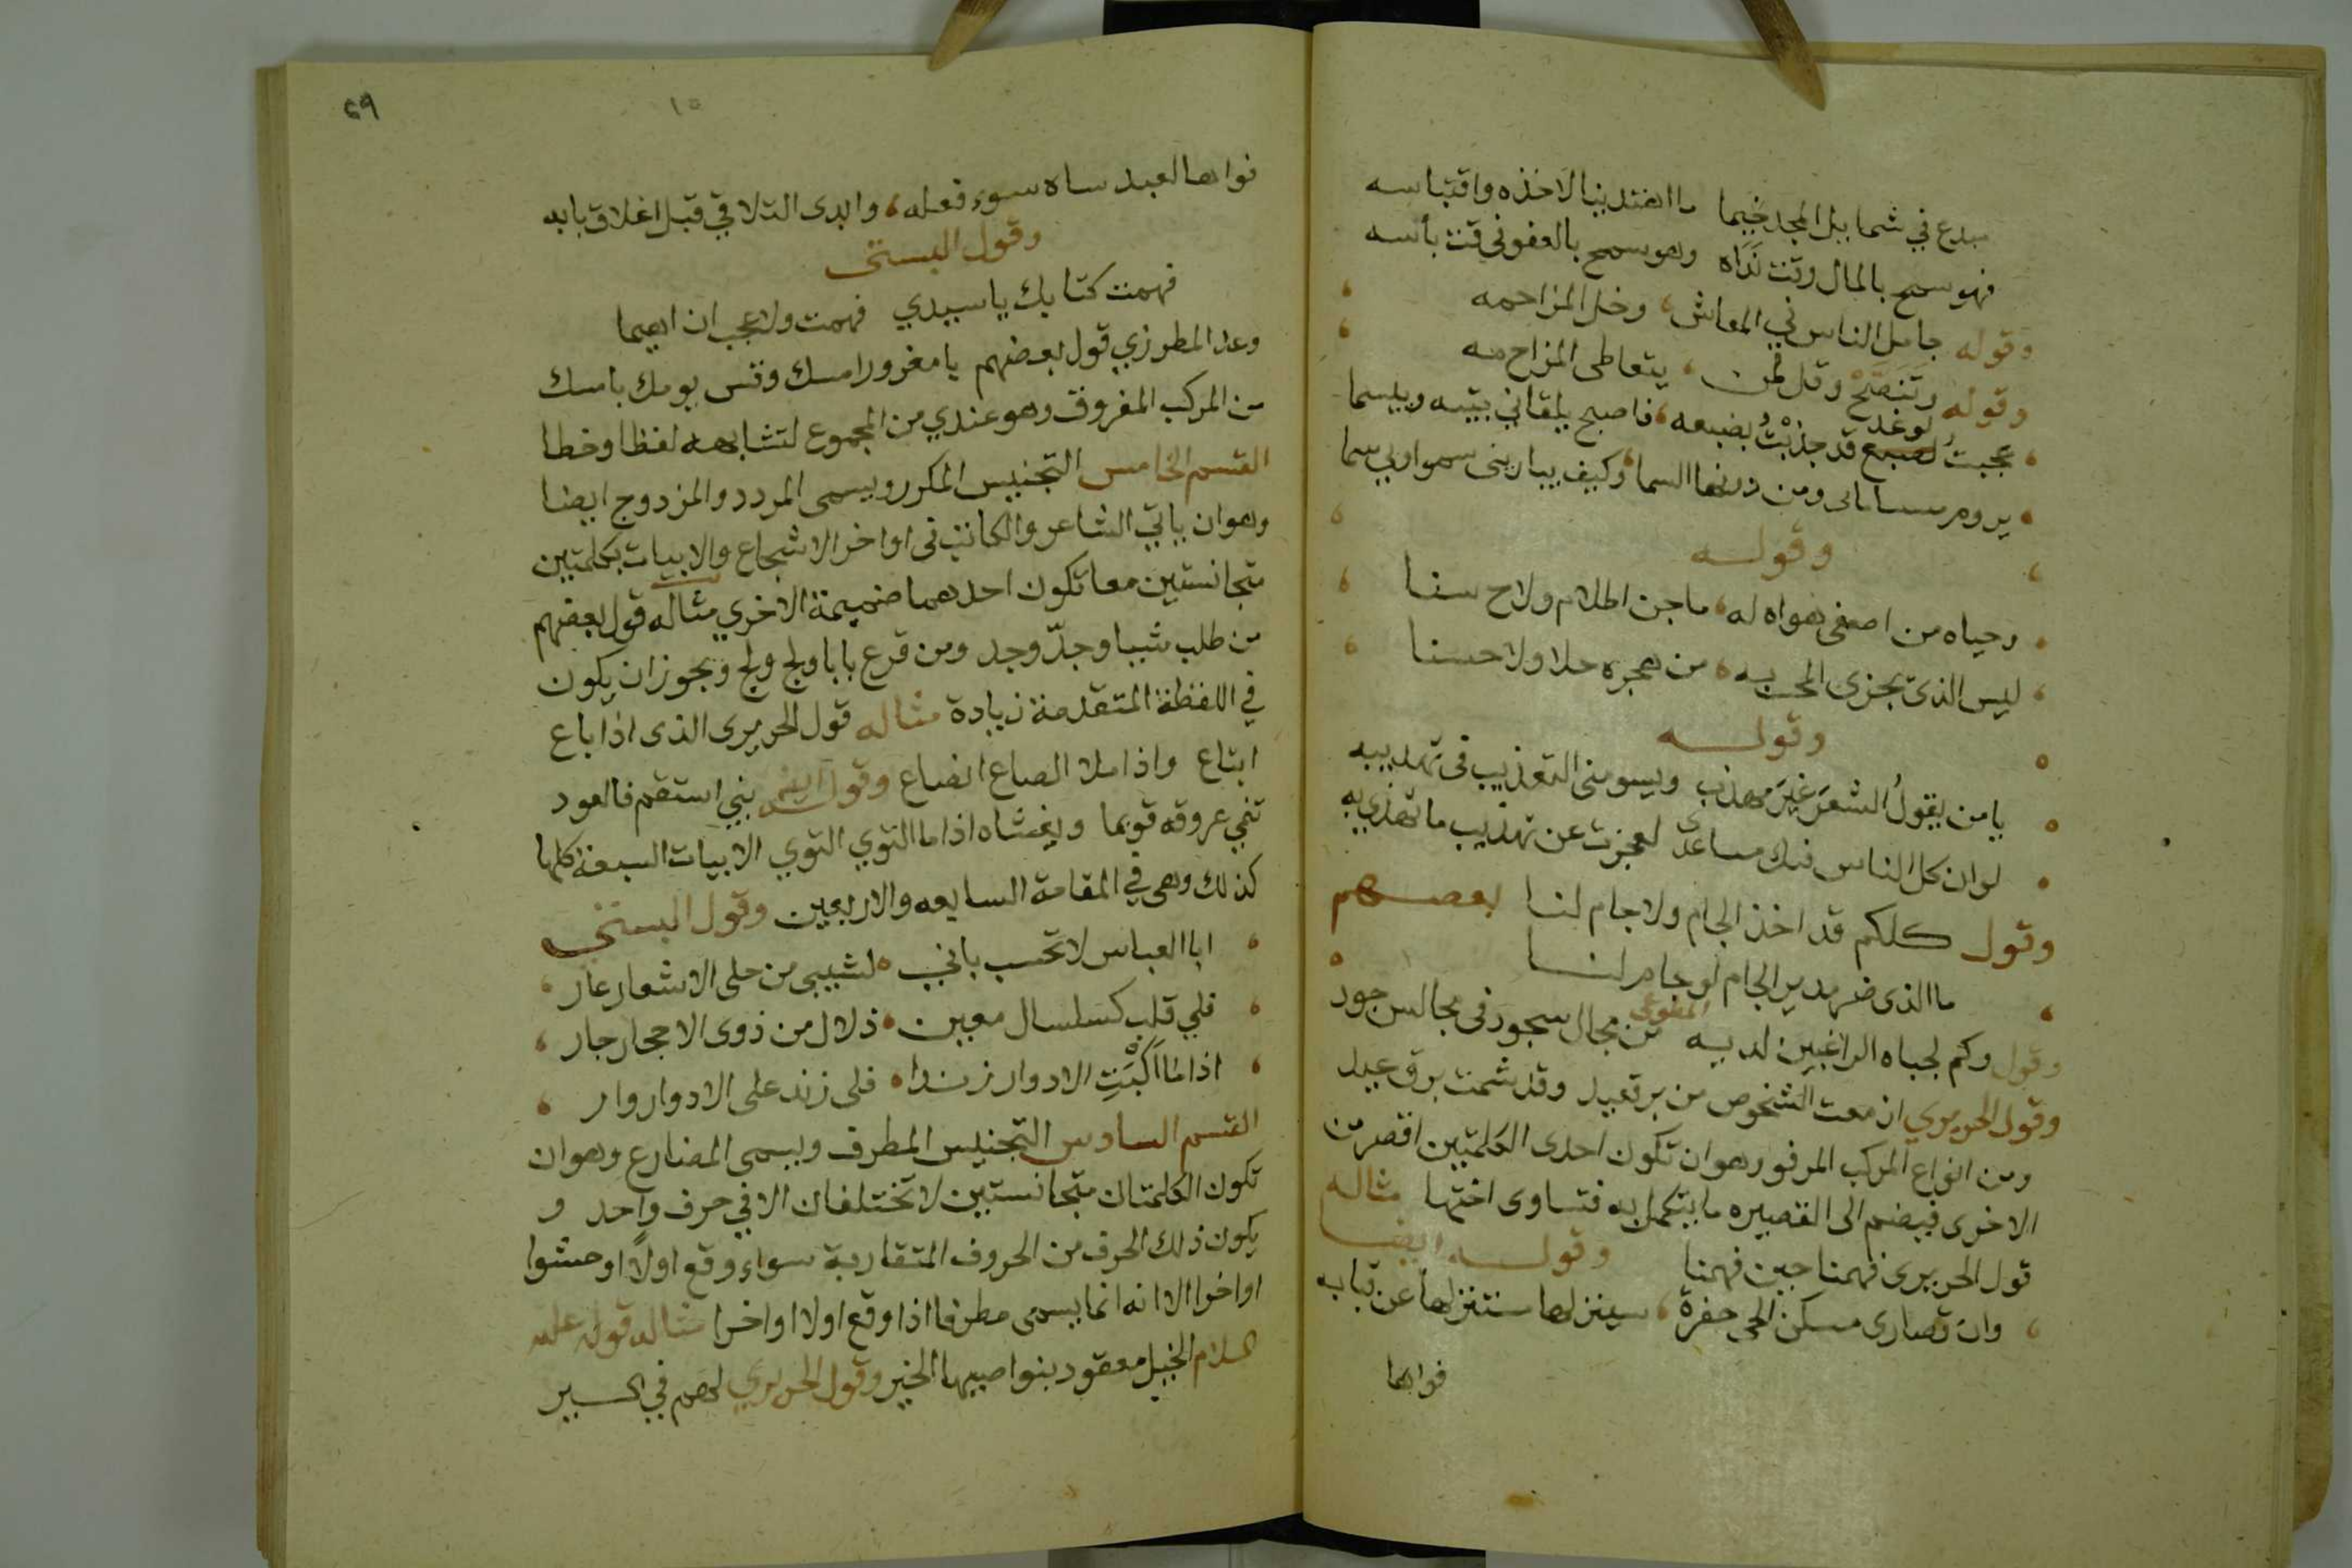 مبدع في شمايل المجد خيما ما اهتدينا لاخذه واقتباسه
فهو سمح بالمال وقت نداه وهو سمح بالعفو في وقت بأسه
وقوله جامل الناس في المعاش، وخل المزاحمه
وقوله وتنصح وقل لمن، يتعاطى المزاح مه
عجبت لوغد قد جذبت بضبعه، فاصبح يلقاني بتيه وبيسما
يروم مساماتي ومن دونها السما، وكيف يباريني سموا وبي سما
وقوله
وحياه من اصغى هواه له، ما جن اظلام ولاح سنا
ليس الذي يجزى المحب به، من هجره حلا ولا حسنا
وقوله
يا من يقول الشعر غير مهذب ويسومني التعذيب في تهذيبه
لو ان كل الناس فيك مساعدى لعجزت عن تهذيب ما تهذي به
وقول بعضهم كلكم قد اخذ الجام ولا جام لنا
ما الذي ضر مدير الجام لو جاملنا
وقول المطوعى وكم لجباه الراغبين لديه من مجال سجود في مجالس جود
وقول الحريري ازمعت الشخوص من برقعيد وقد شمت برق عيد
ومن انواع المركب المرفو وهو ان تكون احدى الكلمتين اقصر من
الاخرى فيضم الى القصيره ما يتكمل به فتساوى اختها مثاله
قول الحريرى فهمنا حين فهمنا وقوله ايضا
وان قصارى مسكن الحي حفرة، سينزلها مستنزلها عن قبابه
فواها
٦٩
١٥
فواها لعبد ساه سوء فعله، وابدى التلاقي قبل اغلاق بابه
وقول البستى
فهمت كتابك يا سيدي فهمت ولا عجب ان اهيما
وعد المطرزي قول بعضهم يا مغرور امسك وقس يومك بامسك
من المركب المفروق وهو عندي من المجموع لتشابهه لفظا وخطا
القسم الخامس التجنيس المكرر ويسمى المردد والمزدوج ايضا
وهو ان ياتي الشاعر والكاتب في اواخر الاسجاع والابيات بكلمتين
متجانستين معا تكون احدهما ضميمة الاخري مثاله قول بعضهم
من طلب شيبا وجدّ وجد ومن قرع بابا ولج ولج ويجوز ان يكون
في اللفظة المتقدمة زيادة مثاله قول الحريرى الذى اذا باع
ابتاع واذا ملا الصاع انصاع وقوله ايضا بني استقم فالعود
تنمي عروقه قويما ويغشاه اذا ما التوي التوي الابيات السبعة كلها
كذلك وهى في المقامة السابعه والاربعين وقول البستى
ابا العباس لا تحسب باني لشيبى من حلى الاشعار عار
فلي قلب كسلسال معين، ذلال من ذوى الاحجار جار
اذا ما اكبت الادوار زندا، فلى زند على الادوار وار
القسم السادس التجنيس المطرف ويسمى المضارع وهو ان
تكون الكلمتان متجانستين لا تختلفان الا في حرف واحد و
يكون ذلك الحرف من الحروف المتقاربة سواء وقع اولًا او حشوا
او اخرا الا انه انما يسمى مطرفا اذا وقع اولا او اخرا مثاله قوله عليه
السلام الخيل معقود بنواصيها الخير وقول الحريري لهم في السير